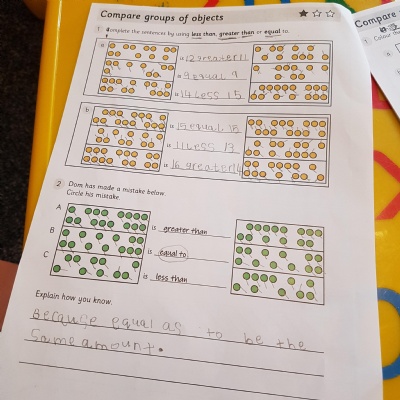 Compare groups of objects
1 Complete the sentences by using less than, greater than or equal to.
a
is 12 greater 11
is 9 equal 9
is 14 Less 15
b
is 15 equal 15
is 11 Less 13
is 16 greater 14
2 Dom has made a mistake below.
Circle his mistake.
A
is greater than
B
is equal to
C
is less than
Explain how you know.
Because equal as to be the
same amount.
Compare
1 Colour the
a